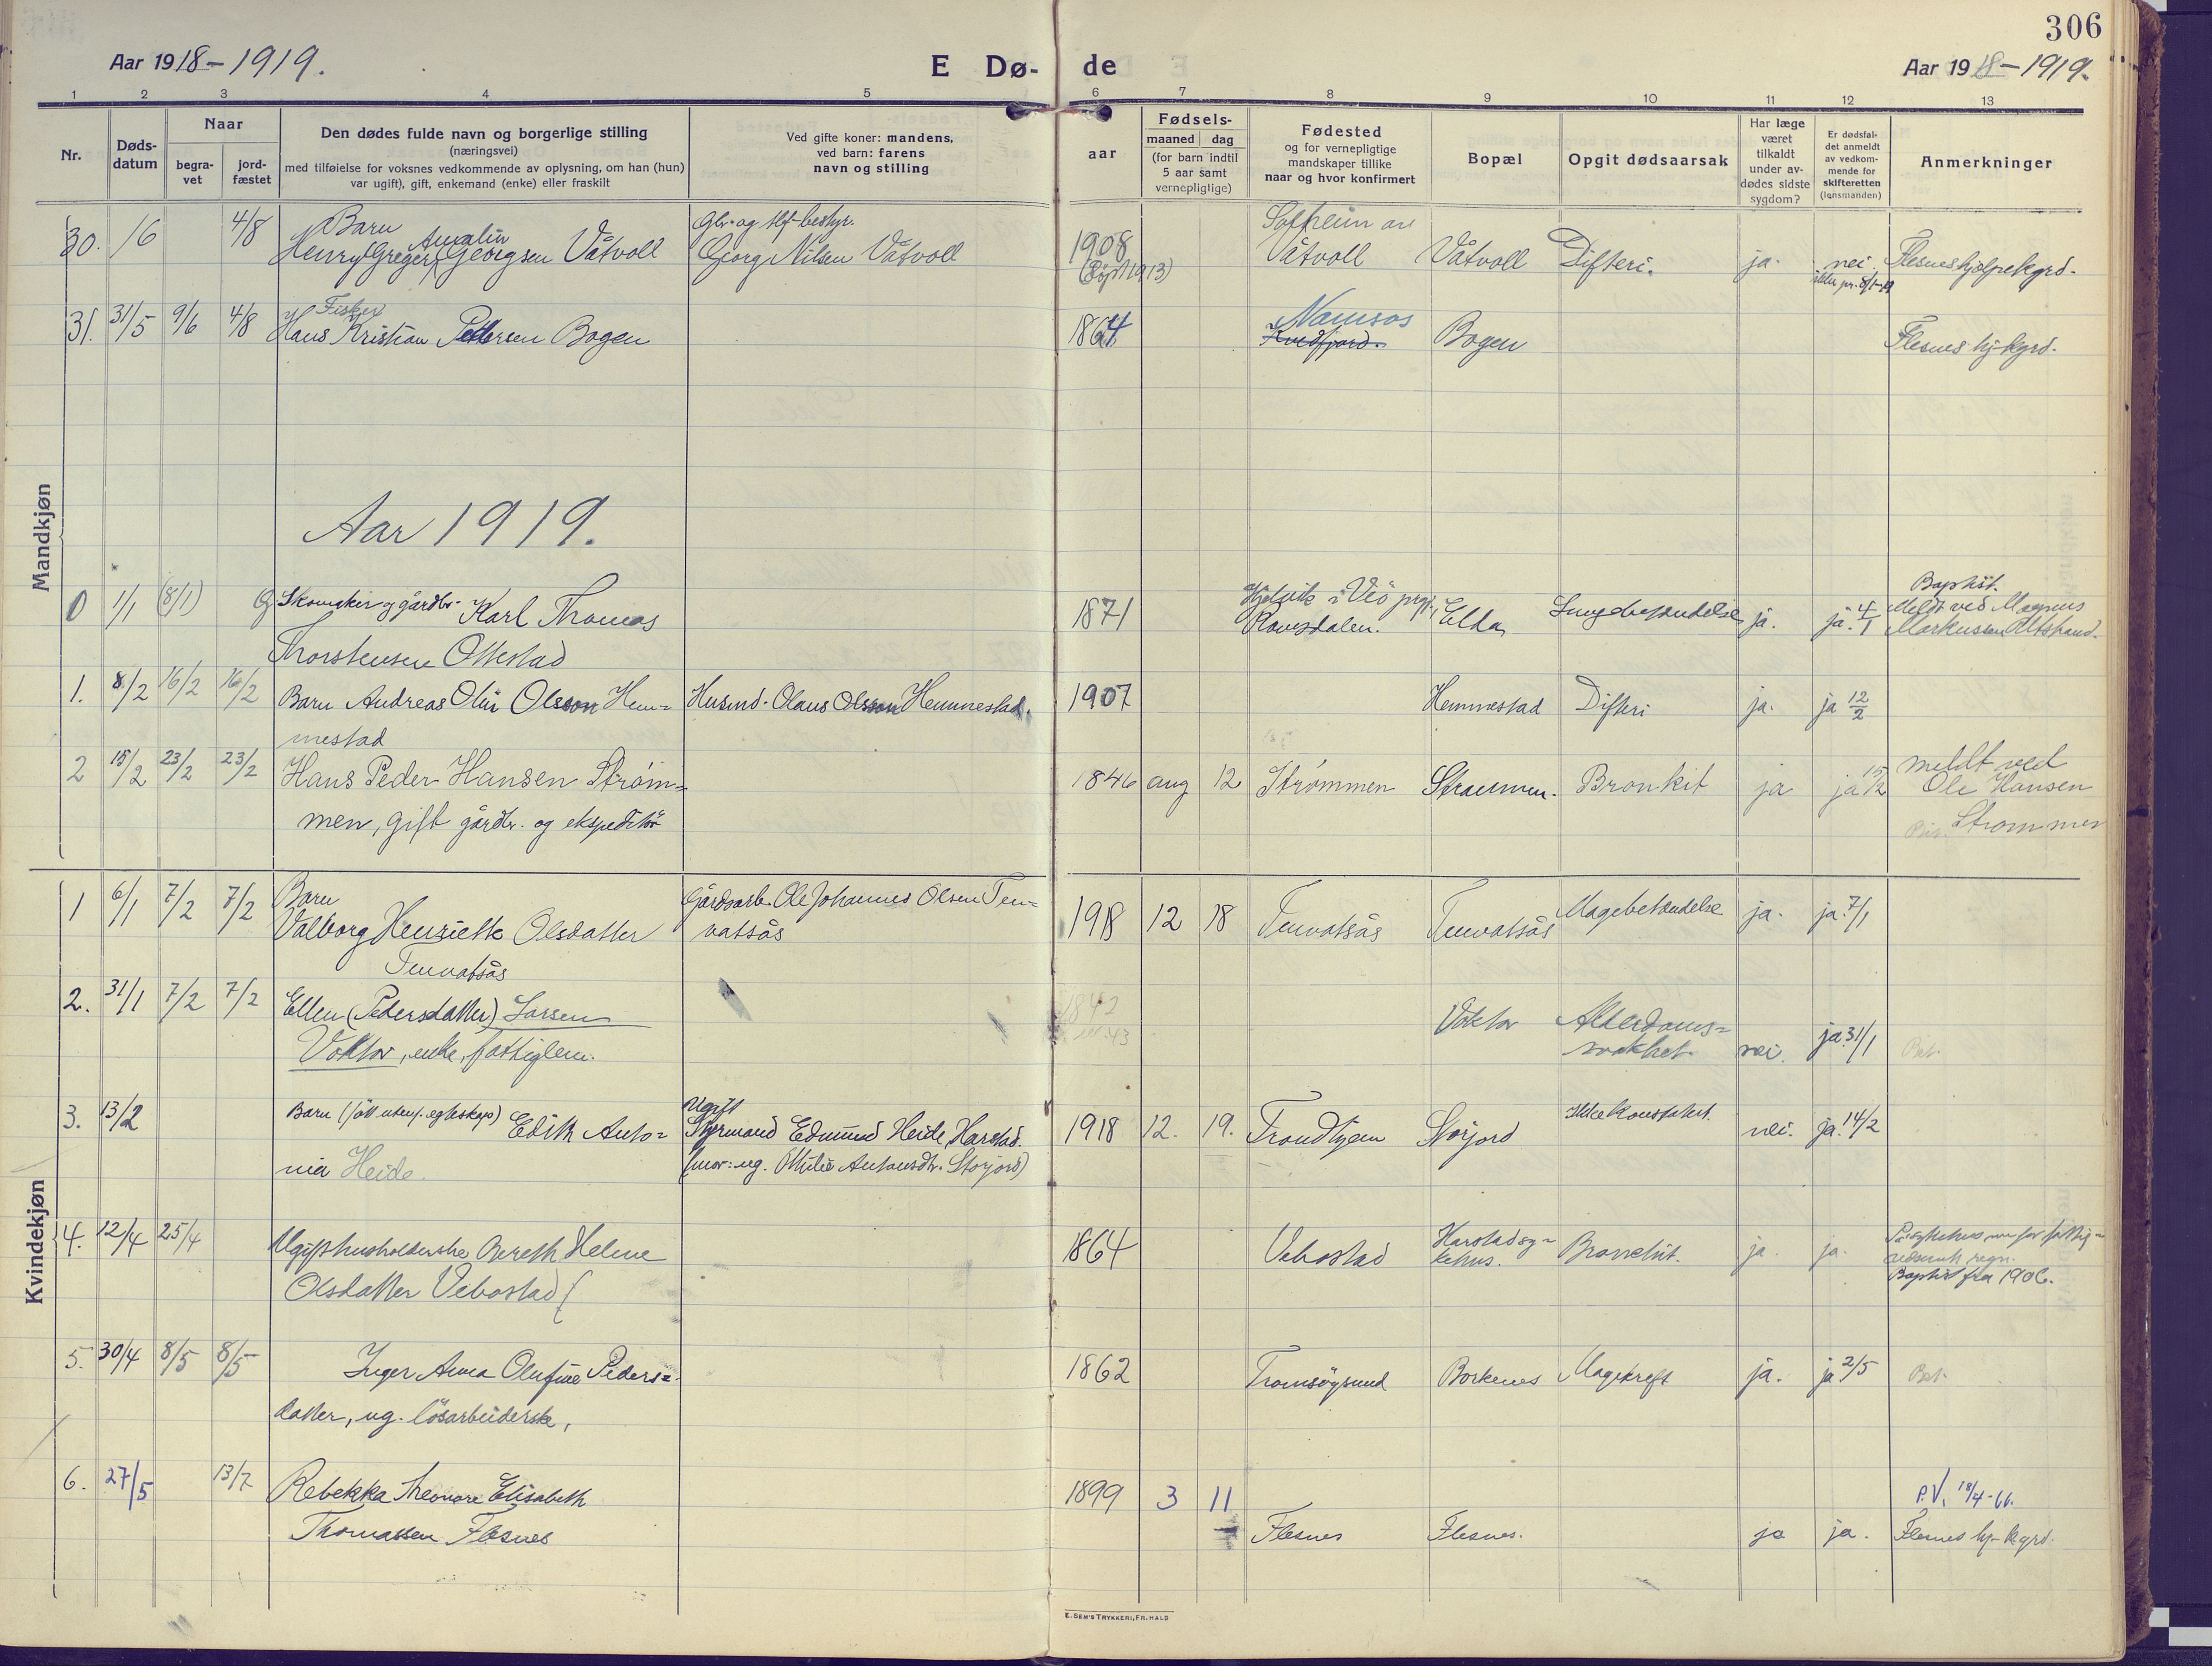 306
Aar 1918-1919.
E Dø- de
Aar 1918-1919.
1 2 3 4 5 6 7 8 9 10 11 12 13
Nr.
Døds-
datum
Naar
begra-
vet
jord-
fæstet
Den dødes fulde navn og borgerlige stilling
(næringsvei)
med tilføielse for voksnes vedkommende av oplysning, om han (hun)
var ugift), gift, enkemand (enke) eller fraskilt
Ved gifte koner: mandens,
ved barn: farens
navn og stilling
Fødsels-
aar
maaned dag
(for barn indtil
5 aar samt
vernepligtige)
Fødested
og for vernepligtige
mandskaper tillike
naar og hvor konfirmert
Bopæl
Opgit dødsaarsak
Har læge
været
tilkaldt
under av-
dødes sidste
sygdom?
Er dødsfal-
det anmeldt
av vedkom-
mende for
skifteretten
(lensmanden)
Anmerkninger
Mandkjøn
30. 16 4/8 Barn
Henry (Greger) Amalin Georgsen Våtvoll
Gbr. og tlf-bestyr.
Georg Nilsen Våtvoll
1908
(Døpt 1913)
Solheim av
Våtvoll Våtvoll Difteri. ja. nei. Flesnes hjelpekgrd.
31. 31/5 9/6 4/8 Fisker
Hans Kristian Pettersen Bogen 1864 Namsos
Kvedfjord. Bogen Flesnes hj-kgrd.
Aar 1919.
0 1/1 (8/1) G Skomaker og gårdbr. Karl Thomas
Thorstensen Ottestad
1871 i Veö prgj.,
Romsdalen. Elda Lungebetændelse ja. ja. 4/1
Baptist.
Meldt ved Magnus
Markussen Altstrand.
1. 8/2 16/2 16/2 Barn Andreas Olai Olsson Hem-
mestad
Husmd. Olaus Olsson Hemmestad. 1907 Hemmestad Difteri ja. ja 12/2
2 15/2 23/2 23/2 Hans Peder Hansen Strøm-
men, gift gårdbr. og ekspeditör
1846 aug 12 Strømmen Straumen. Bronkit ja ja 15/2
meldt ved
Ole Hansen
Strømmen
Kvindekjøn
1 6/1 7/2 7/2 Barn
Valborg Henriette Olsdatter
Tenvatsås
Gårdsarb. Ole Johannes Olsen Ten-
vatsås
1918 12 18 Tenvatsås Tenvatsås Magebetændelse ja. ja. 7/1
2. 31/1 7/2 7/2 Ellen (Pedersdatter) Larsen
Voktor, enke, fattiglem.
1842
Voktor Alderdoms-
svakhet. nei. ja 31/1 Bet.
3. 13/2 Barn (fött utenf. egteskap) Edith Anto-
nia Heide.
Ugift
Styrmand Edmund Heide, Harstad.
(mor: ug. Ottilie Antonsdtr. Storjord)
1918 12. 19. Trondhjem Storjord Ikke konstatert. nei. ja. 14/2
4. 12/4 25/4 Ugift husholderske Bereth Helene
Olsdatter Vebostad (
1864 Vebostad Harstad sy-
kehus. Bronchit. ja. ja.
Baptist fra 1906.
5. 30/4 8/5 8/5 Inger Anna Olufine Peders-
datter, ug. lösarbeiderske,
1862 Tromsøysund Borkenes Magekreft ja. ja 2/5 Bet.
6. 27/5 13/7 Rebekka Theonore Elisabeth
Thomassen Flesnes
1899 3 11 Flesnes Flesnes. ja ja.
P.V. 18/4-66.
Flesnes hj-kgrd.
E. SEM'S TRYKKERI, FR.HALD